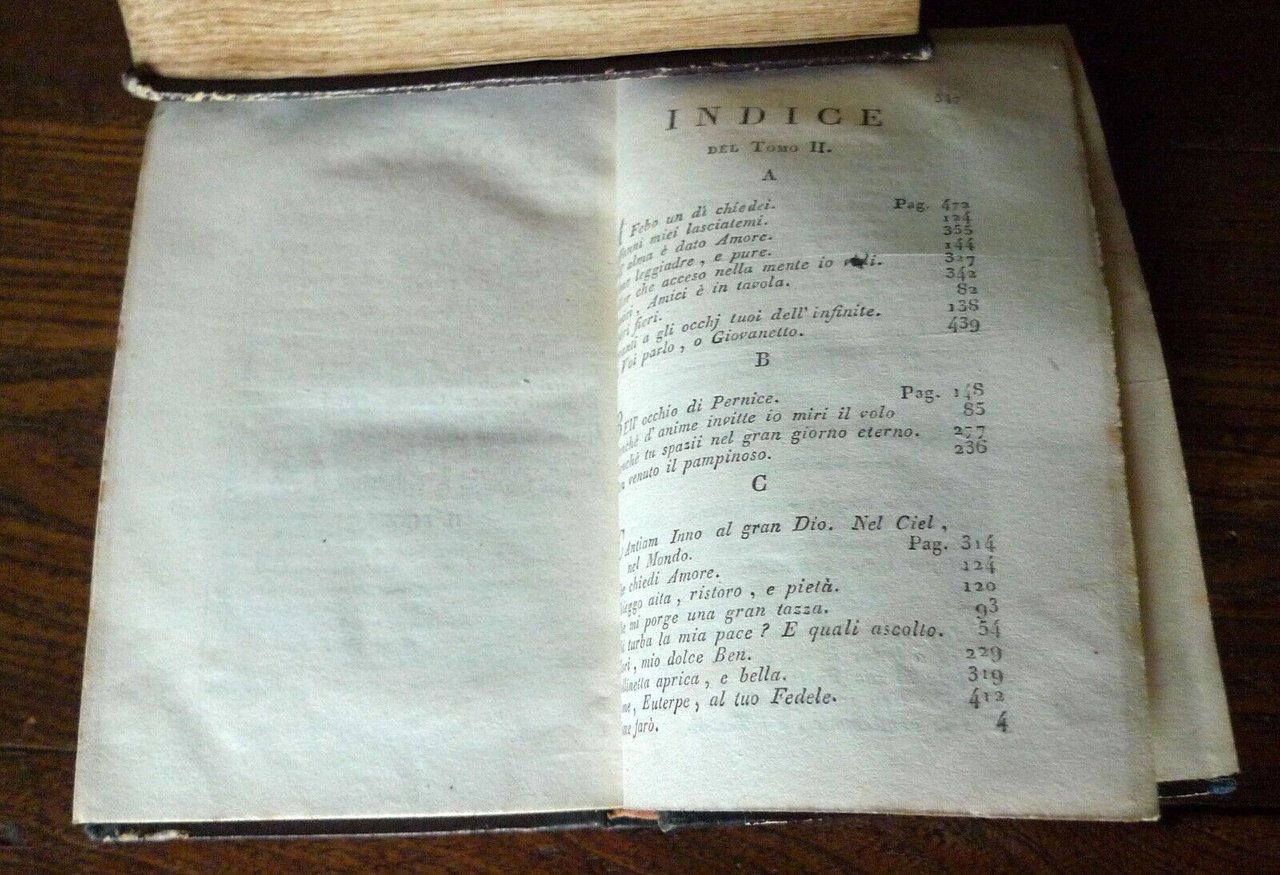 547
INDICE
DEL TOMO II.
A
Febo un dì chiedei. Pag. 472
miei lasciatemi. 124
alma è dato Amore. 355
leggiadre, e pure. 144
che acceso nella mente io 327
Amici è in tavola. 342
fieri. 82
a gli occhj tuoi dell' infinite. 138
Voi parlo, o Giovanetto. 439
B
occhio di Pernice. Pag. 148
d'anime invitte io miri il volo 85
tu spazii nel gran giorno eterno. 277
venuto il pampinoso. 236
C
Inno al gran Dio. Nel Ciel,
nel Mondo. Pag. 314
chiedi Amore. 124
aita, ristoro, e pietà. 120
mi porge una gran tazza. 93
turba la mia pace? E quali ascolto. 54
mio dolce Ben. 229
aprica, e bella. 319
Euterpe, al tuo Fedele. 412
farò. 4